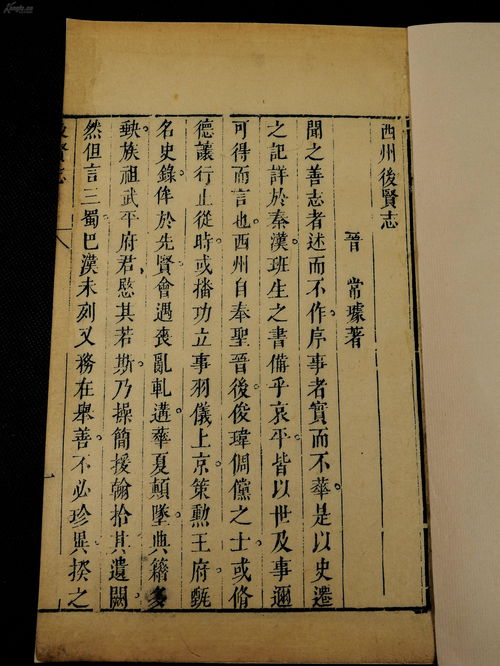 西州後賢志
晉 常璩著
聞之善志者述而不作序事者實而不華是以史遷
之記詳於秦漢班生之書備乎哀平皆以世及事邇
可得而言也西州自奉聖晉後俊瑋倜儻之士或脩
德讓行止從時或播功立事羽儀上京策勲王府甄
名史錄侔於先賢會遇喪亂軋遘華夏顛墜典籍多
缺族祖武平府君愍其若斯乃操簡援翰拾其遺闕
然但言三蜀巴漢未列又務在舉善不必珍異揆之
後賢志
一